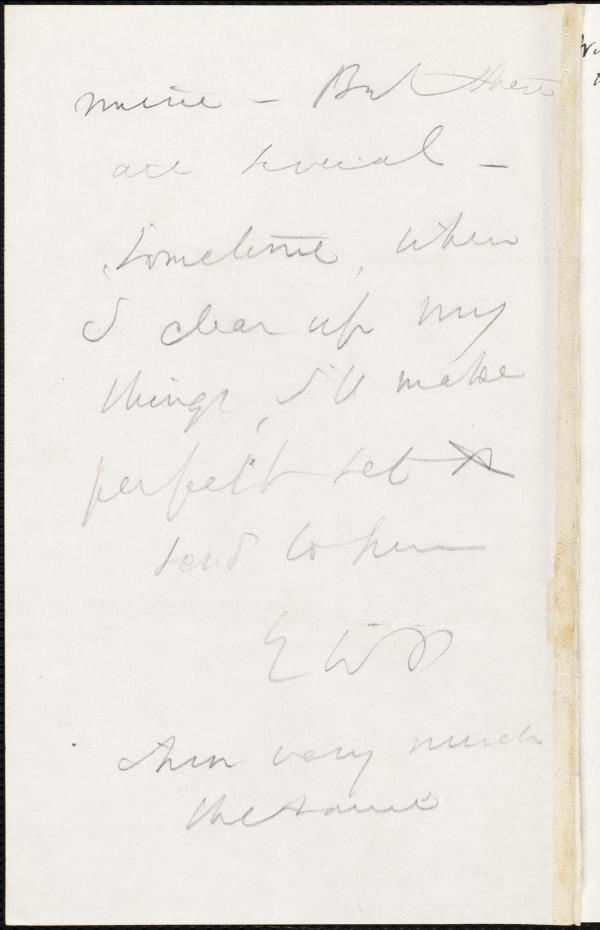 mine – But there
are several –
Sometime, when
I clear up my
things, I'll make
perfect set &
send to him
very much
the same